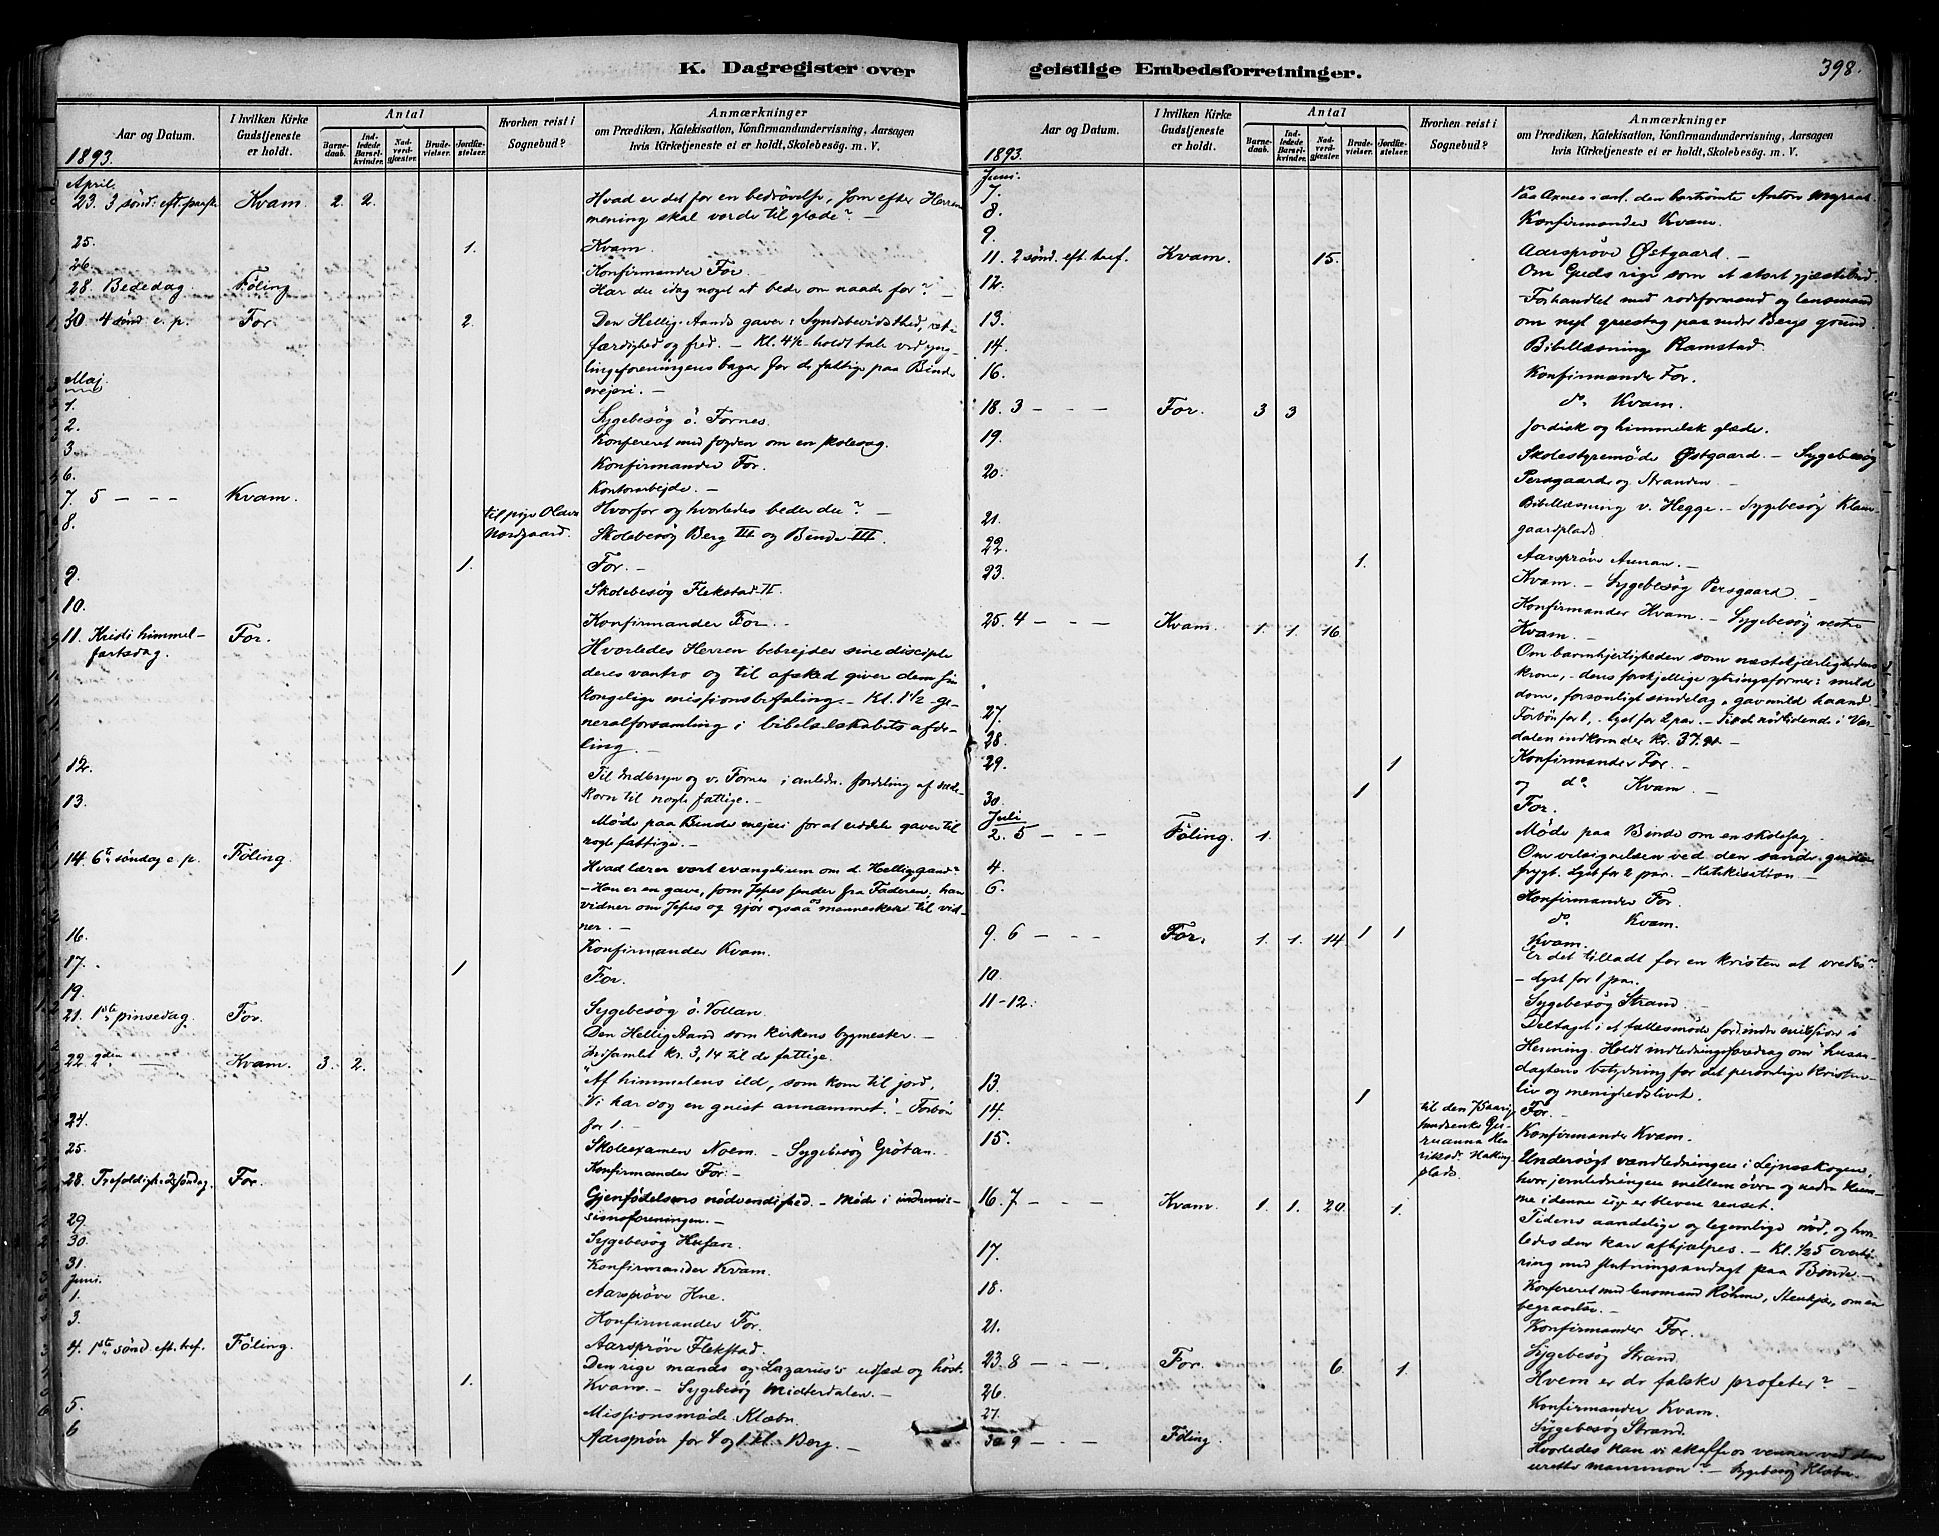 K. Dagregister over geistlige Embedsforretninger.
398.
Aar og Datum.
I hvilken Kirke Gudstjeneste er holdt.
Antal
Barnedaab.
Indledede Barselkvinder.
Nadverdgjæster.
Brudevielser.
Jordfæstelser.
Hvorhen reist i Sognebud?
Anmærkninger
om Prædiken, Katekisation, Konfirmandundervisning, Aarsagen
hvis Kirketjeneste ei er holdt, Skolebesøg. m. V.
1893.
April.
23. 3 sønd. eft. paaske Kvam. 2. 2. Hvad er det for en bedrøvelse, som efter Herrens
mening skal vorde til glæde? —
25. 1. Kvam.
26. Konfirmander For.
28 Bededag Føling Har du idag noget at bede om naade for? —
30 4 sønd. e. p. For. 2. Den Hellig-Aands gaver: Syndsbevidsthed, ret-
færdighed og fred. — Kl. 4½ holdt tale ved yng-
lingeforeningens bazar for de fattige paa Binde
mejeri. —
Maj.
1. Sygebesøg ö. Fornes.
2. Konfereret med fogden om en skolesag.
3. Konfirmander For.
6. Kontorarbejde. —
7. 5 — — — Kvam. Hvorfor og hvorledes beder du? —
8. til pige Nordgaard. Skolebesøg Berg III og Binde III.
9. 1. For. —
10. Skolebesøg Flekstad II.
Konfirmander For. —
11. Kristi himmel-
fartsdag. For. Hvorledes Herren bebrejder sine disciple
deres vantro og til afsked giver dem sin
kongelige missionsbefaling. — Kl. 1½ ge-
neralforsamling i bibelselskabets afde-
ling. —
12. Til Indbryn og v. Fornes i anledn. fordeling af sæde-
korn til nogle fattige. —
13. Møde paa Binde mejeri for at uddele gaver til
nogle fattige. —
14. 6te søndag e. p. Føling. Hvad lærer vort evangelium om d. Helligaand?
— Han er en gave, som Jesus sender fra Faderen, han
vidner om Jesus og gjør ogsaa os mennesker til vid-
ner. —
16. Konfirmander Kvam.
17. 1 For.
19. Sygebesøg ö. Vollan.
21. 1ste pinsedag. For. Den Hellig Aand som kirkens bygmester. —
Indsamlet kr. 3,14 til de fattige.
22. 2den — Kvam. 3. 2. "Af himmelens ild, som kom til jord,
Vi har dog en gnist annammet." — Forbøn
for 1. —
24. Skoleexamen Noem. — Sygebesøg Grötan.
25. Konfirmander For. —
28. Trefoldigheds søndag. For. Gjenfødelsens nødvendighed. — Møde i indremis-
sionsforeningen. —
29. Sygebesøg Husan.
30. Konfirmander Kvam.
31. Aarsprøve Hne.
Juni.
1. Konfirmander For.
3. Aarsprøve Flekstad.
4. 1ste sønd. eft. tref. Føling. Den rige mands og Lazarus's udsæd og høst.
1. Kvam. — Sygebesøg Midterdalen. —
5. Missionsmøde Klæbn.
6 Aarsprøve for 4 og 1 kl. Berg. —
Aar og Datum.
I hvilken Kirke Gudstjeneste er holdt.
Antal
Barnedaab.
Indledede Barselkvinder.
Nadverdgjæster.
Brudevielser.
Jordfæstelser.
Hvorhen reist i Sognebud?
Anmærkninger
om Prædiken, Katekisation, Konfirmandundervisning, Aarsagen
hvis Kirketjeneste ei er holdt, Skolebesøg. m. V.
1893.
Juni.
7. Paa Axnes i anl. den bortrømte Anton
8. Konfirmander Kvam.
9. Aarsprøve Østgaard. —
11. 2 sønd. eft. tref. Kvam. 15. Om Guds rige som et stort gjæstebud.
12. Forhandlet med rodeformænd og lensmand
om nyt grustag paa nedre Bergs grund.
13. Bibellæsning Ramstad.
14. Konfirmander For.
16. do Kvam.
18. 3 — — — For. 3 3 Jordisk og himmelsk glæde.
19. Skolestyremøde Østgaard. — Sygebesøg
Persgaard og Stranden —
20. Bibellæsning v. Hegge. — Sygebesøg Klam-
gaardplads.
21. Aarsprøve Aunan. —
22. 1. Kvam. — Sygebesøg Persgaard. —
23. Konfirmander Kvam. — Sygebesøg vestre
Kvam. —
25. 4 — — — Kvam. 1. 1. 16. Om barmhjertigheden som næstekjærlighedens
krone, — dens forskjellige ytringsformer: mild
dom, forsonligt sindelag, gavmild haand.
Forbøn for 1, — Lyst for 2 par. — Til de nødlidende i Vær-
dalen indkom der kr. 37.91 —
27. Konfirmander For. —
28. og do Kvam. —
29. 1 For.
30. 1 Møde paa Binde om en skolesag.
Juli
2. 5 — — — Føling. 1. Om velsignelsen ved den sande guds-
frygt. Lyst for 2 par. — Katekisation —
4. Konfirmander For.
6. do Kvam.
9. 6 — — — For. 1. 1. 14. 1 1 Kvam.
Er det tilladt for en kristen at vredes?
— Lyst for 1 par.
10 Sygebesøg Strand.
11-12. Deltaget i et fællesmøde for indre mission i
Henning. Holdt indledningsforedrag om "husan-
dagtens betydning for det personlige kristen-
liv og menighedslivet.
13. 1 For.
14. til den Konfirmander Kvam.
15. Undersøgt vandledningen i Lejnsskogen,
hvor jernledningen mellem øvre og nedre kum-
me i denne uge er bleven renset.
plads
16. 7 — — Kvam. 1. 1. 20. 1. Tidens aandelige og legemlige nød, og hvor-
ledes den kan afhjælpes. — Kl. ½5 overhø-
ring med slutningsandagt paa Binde. —
17. Konfereret med lensmand Røhme, Stenkjær, om en
begravelse. —
18. Konfirmander For.
21. Sygebesøg Strand.
23. 8 — — — For. 6. 1. Hvem er de falske profeter? —
26. Konfirmander Kvam.
27. Sygebesøg Strand.
30 9 — — Føling Hvorledes kan vi skaffe os venner ved den
urette mammon? — Sygebesøg Klæbn.